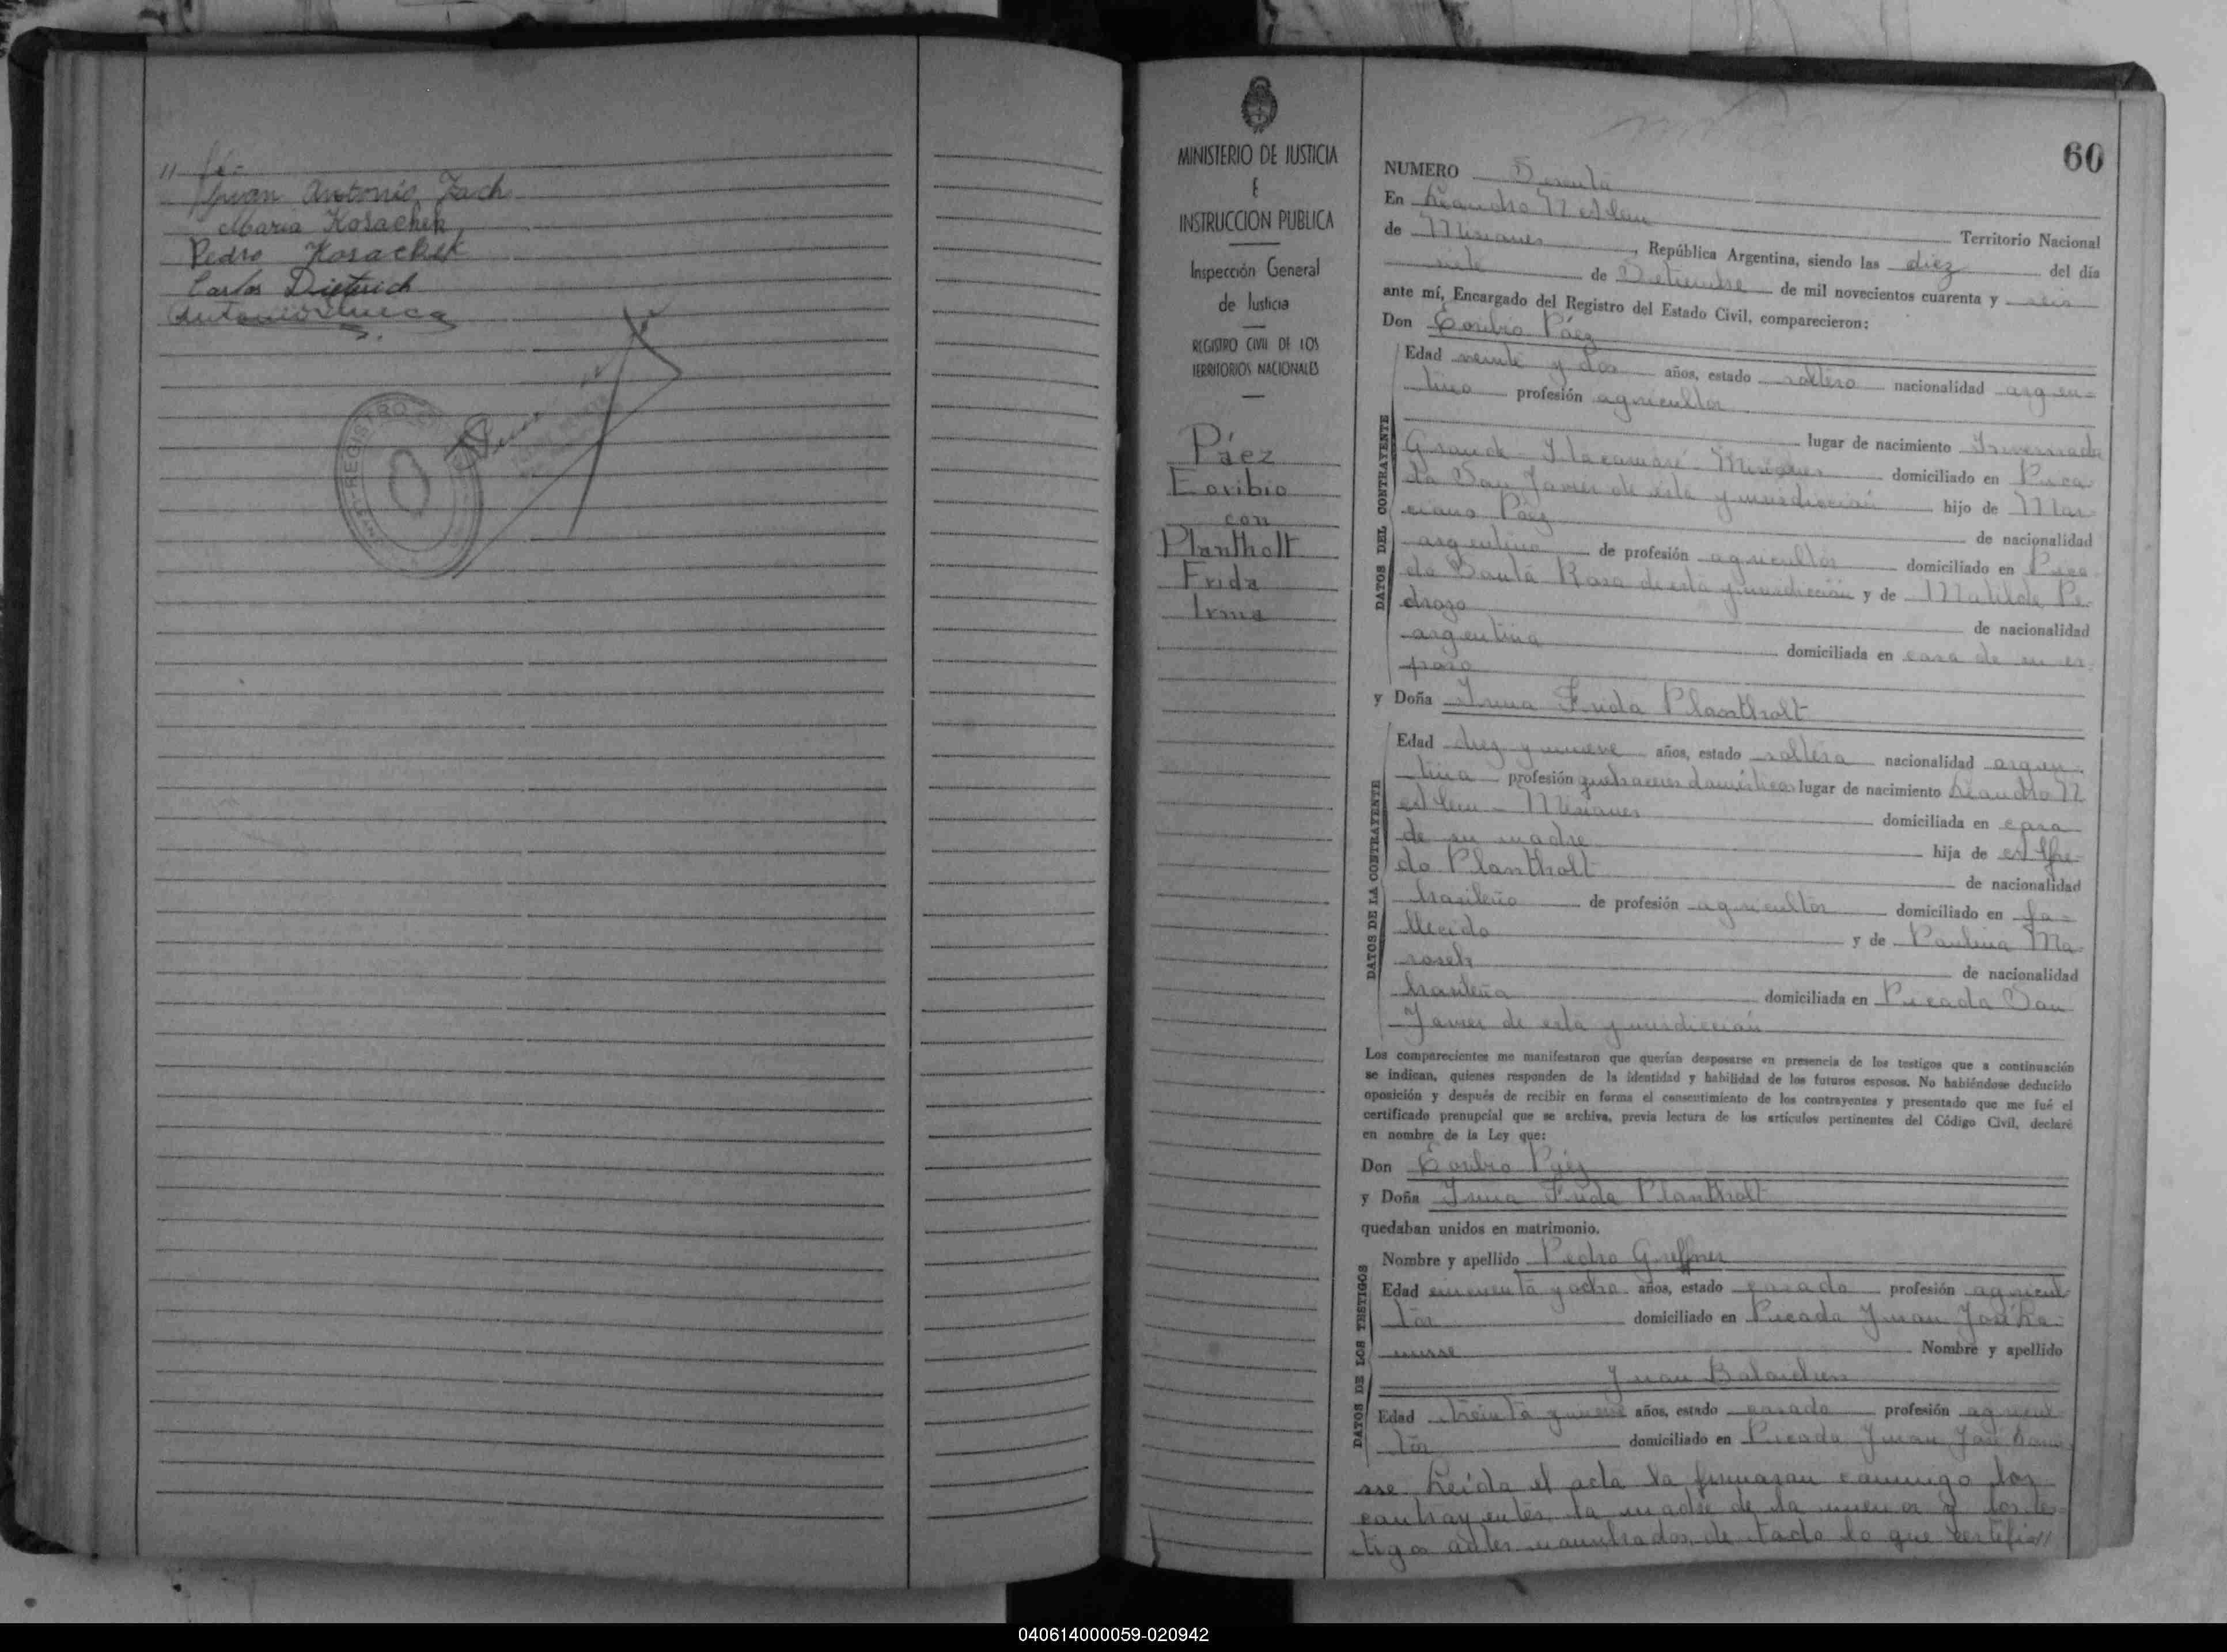 // fé-
Juan Antonio Zach
Maria Kosachek
Pedro Kosachek
Carlos Dietrich
REGISTRO
MINISTERIO DE JUSTICIA
E
INSTRUCCION PUBLICA
Inspección General
de Justicia
REGISTRO CIVIL DE LOS
TERRITORIOS NACIONALES
Páez
Eoribio
con
Plantholt
Frida
Irma
60
NUMERO Sesenta
En Leandro N Alem Territorio Nacional
de Misiones, República Argentina, siendo las diez del día
siete de Setiembre de mil novecientos cuarenta y seis
ante mí, Encargado del Registro del Estado Civil, comparecieron:
Don Eoribio Páez
DATOS DEL CONTRAYENTE
Edad veinte y dos años, estado soltero nacionalidad argen-
tino profesión agricultor
lugar de nacimiento Invernada
Grande - Itacaruaré - Misiones domiciliado en Pica
da San Javier de esta jurisdicción hijo de Mar
ciano Páez de nacionalidad
argentino de profesión agricultor domiciliado en Pica
da Santa Rosa de esta jurisdicción y de Matilde Pe
drozo de nacionalidad
argentina domiciliada en casa de su es-
poso
y Doña Irma Frida Plantholt
DATOS DE LA CONTRAYENTE
Edad diez y nueve años, estado soltera nacionalidad argen-
tina profesión quehaceres domésticos lugar de nacimiento Leandro N
Alem - Misiones domiciliada en casa
de su madre hija de Alfre-
do Plantholt de nacionalidad
brasileño de profesión agricultor domiciliado en fa-
llecido y de Paulina Ma-
rosch de nacionalidad
brasileña domiciliada en Picada San
Javier de esta jurisdicción
Los comparecientes me manifestaron que querían desposarse en presencia de los testigos que a continuación
se indican, quienes responden de la identidad y habilidad de los futuros esposos. No habiéndose deducido
oposición y después de recibir en forma el consentimiento de los contrayentes y presentado que me fué el
certificado prenupcial que se archiva, previa lectura de los artículos pertinentes del Código Civil, declaré
en nombre de la Ley que:
Don Eoribio Páez
y Doña Irma Frida Plantholt
quedaban unidos en matrimonio.
DATOS DE LOS TESTIGOS
Nombre y apellido Pedro Greffner
Edad cincuenta y ocho años, estado casado profesión agricul
tor domiciliado en Picada Juan José La-
nusse Nombre y apellido
Juan
Edad treinta y nueve años, estado casado profesión agricul
tor domiciliado en Picada Juan José Lanu
sse. Leída el acta la firmaron conmigo los
contrayentes, la madre de la menor y los tes-
tigos antes nombrados, de todo lo que certifico//
040614000059-020942